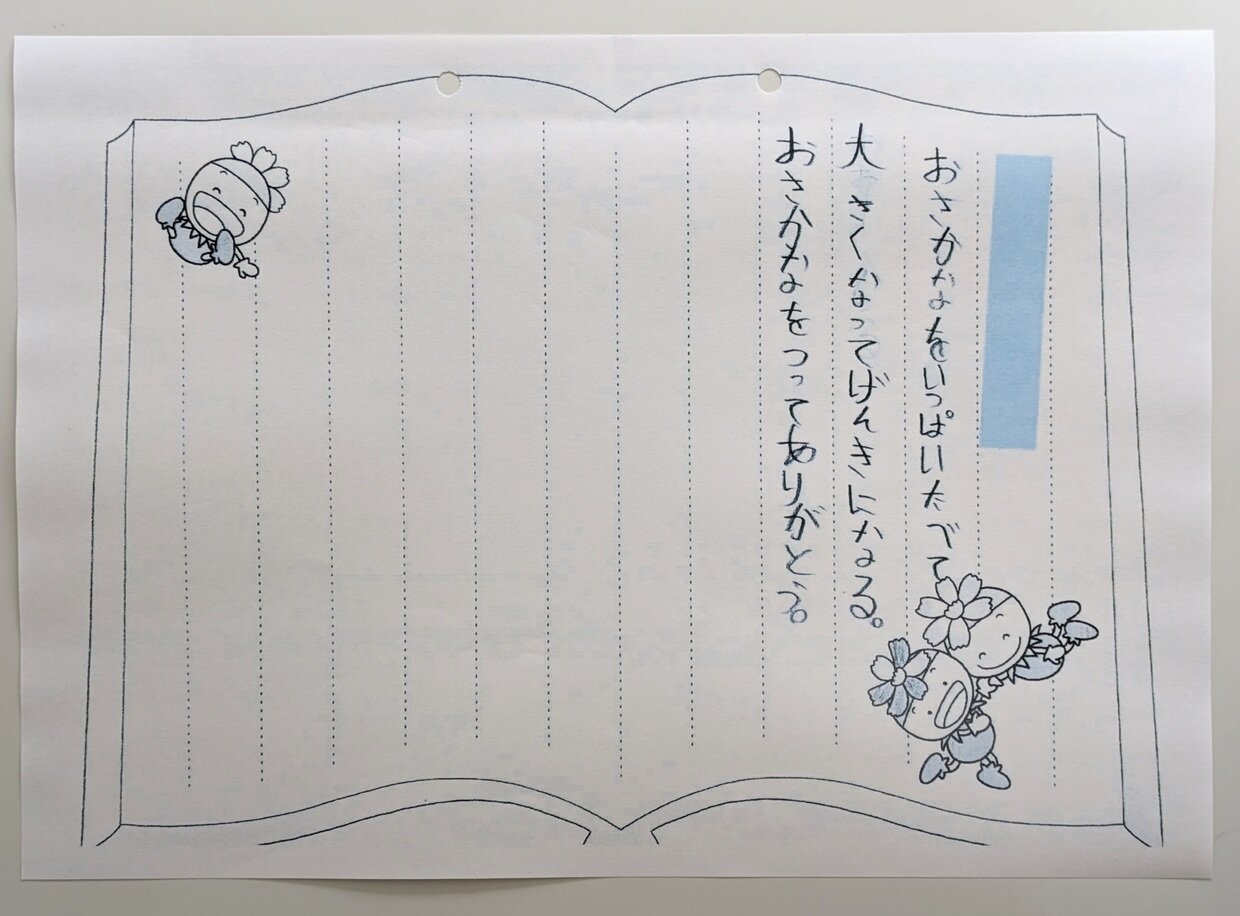 おさかなをいっぱいたべて
大きくなってげんきになる。
おさかなをつってありがとう。